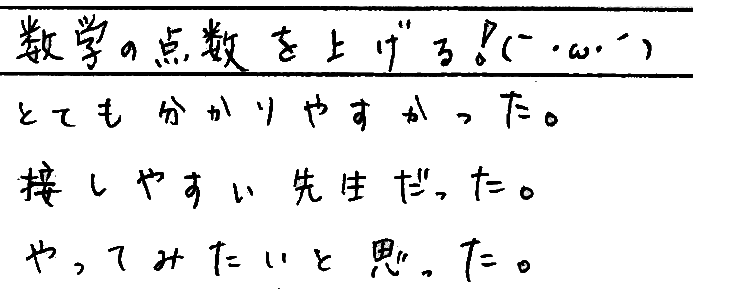 数学の点数を上げる!(｀・ω・´)
とても分かりやすかった。
接しやすい先生だった。
やってみたいと思った。